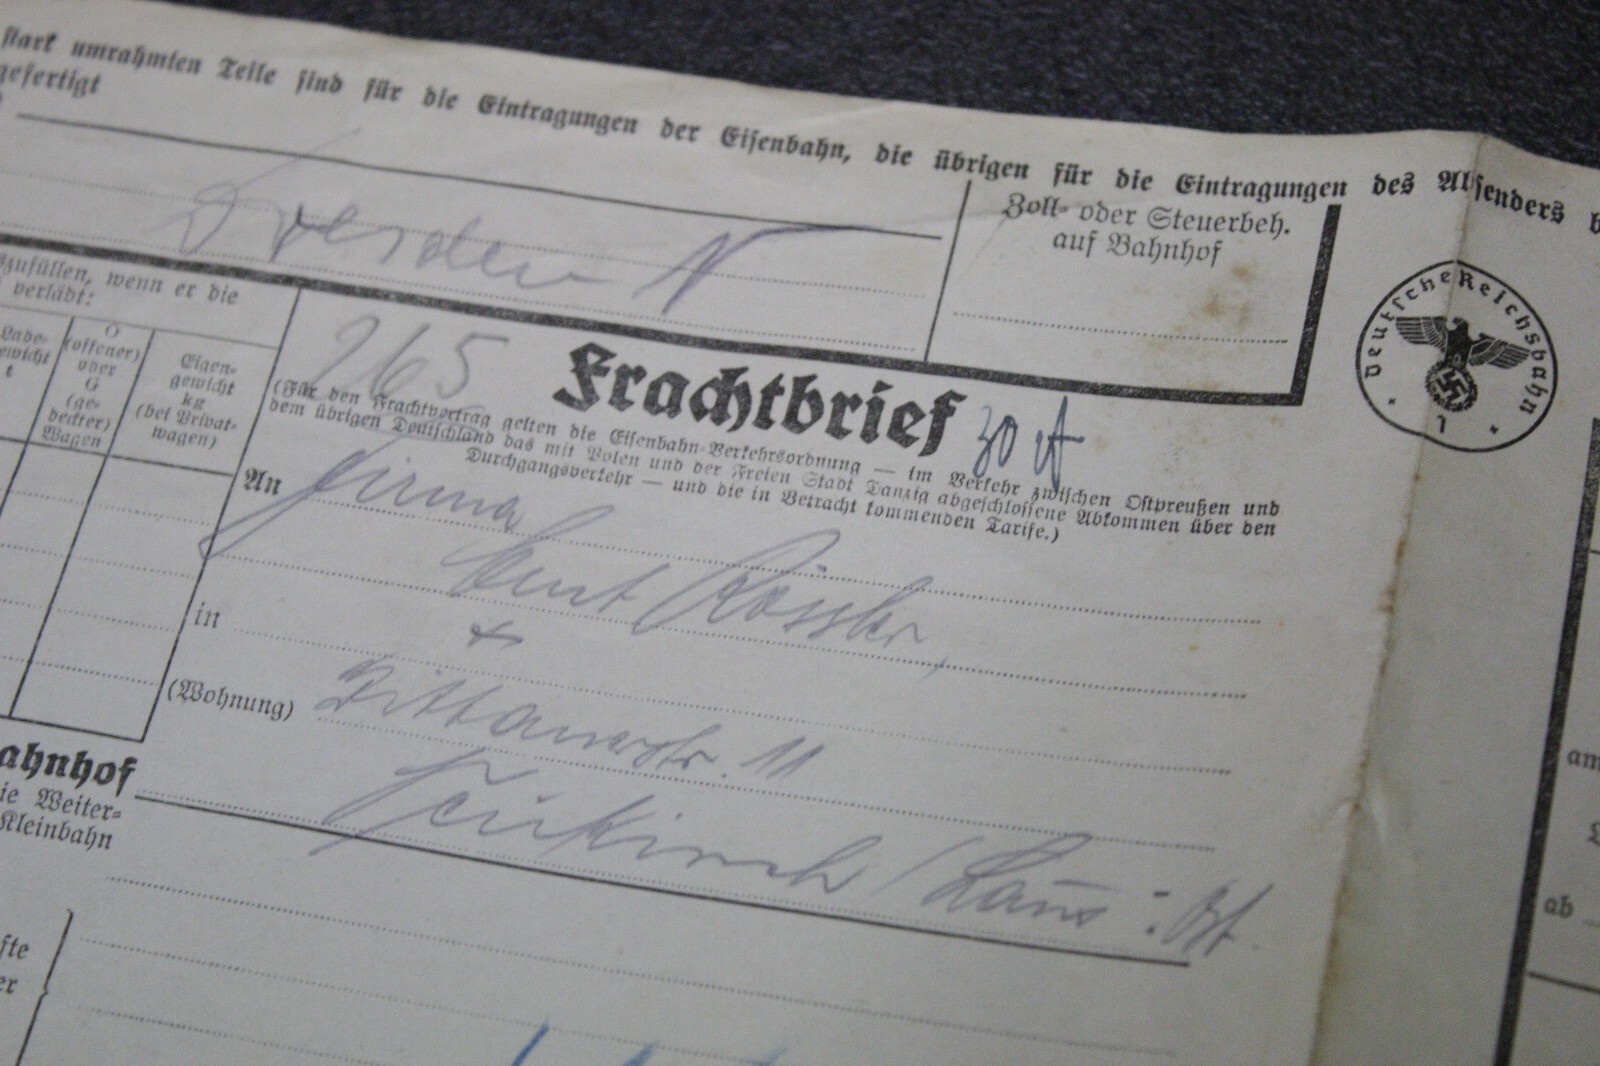 stark umrahmten Teile sind für die Eintragungen der Eisenbahn, die übrigen für die Eintragungen des Absenders b
gefertigt
Dresden N
Zoll- oder Steuerbeh.
auf Bahnhof
Deutsche Reichsbahn
zufüllen, wenn er die
verlädt:
Lade-
gewicht
t
O
(offener)
oder
G
(ge-
deckter)
Wagen
Eigen-
gewicht
kg
(bei Privat-
wagen)
265
Frachtbrief
(Für den Frachtvertrag gelten die Eisenbahn-Verkehrsordnung — im Verkehr zwischen Ostpreußen und
dem übrigen Deutschland das mit Polen und der Freien Stadt Danzig abgeschlossene Abkommen über den
Durchgangsverkehr — und die in Betracht kommenden Tarife.)
An Firma
Curt Rössler,
in
(Wohnung) Zittauerstr. 11
ahnhof
ie Weiter-
Kleinbahn
am
ab
fte
er